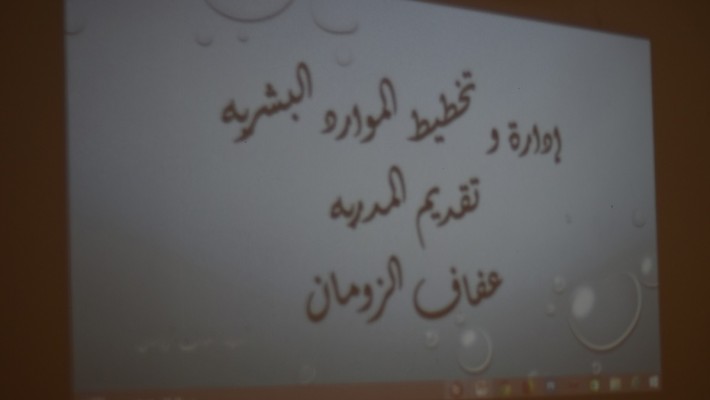 إدارة و تخطيط الموارد البشريه
تقديم المدربه
عفاف الزومان